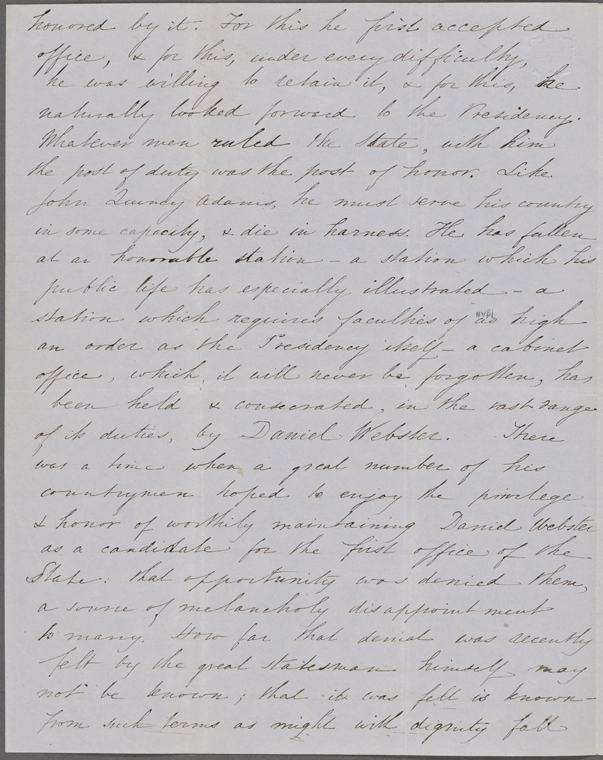 honored by it. For this he first accepted
office, & for this, under every difficulty,
he was willing to retain it, & for this, he
naturally looked forward to the Presidency.
Whatever men ruled the State, with him
the post of duty was the post of honor. Like
John Quincy Adams, he must serve his country
in some capacity, & die in harness. He has fallen
at an honorable station - a station which his
public life has especially illustrated - a
station which requires faculties of as high
NYPL
an order as the Presidency itself - a cabinet
office, which, it will never be forgotten, has
been held & consecrated, in the vast range
of its duties, by Daniel Webster. There
was a time when a great number of his
countrymen hoped to enjoy the privilege
& honor of worthily maintaining Daniel Webster
as a candidate for the first office of the
State: that opportunity was denied them,
a source of melancholy disappointment
to many. How far that denial was recently
felt by the great statesman himself may
not be known; that it was felt is known -
from such terms as might with dignity fall